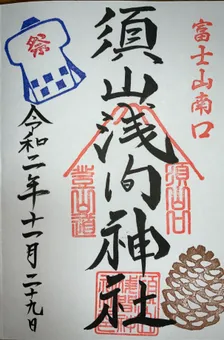 富士山南口
須山浅间神社
須山口
登山道
祭
令和二年十一月二十九日